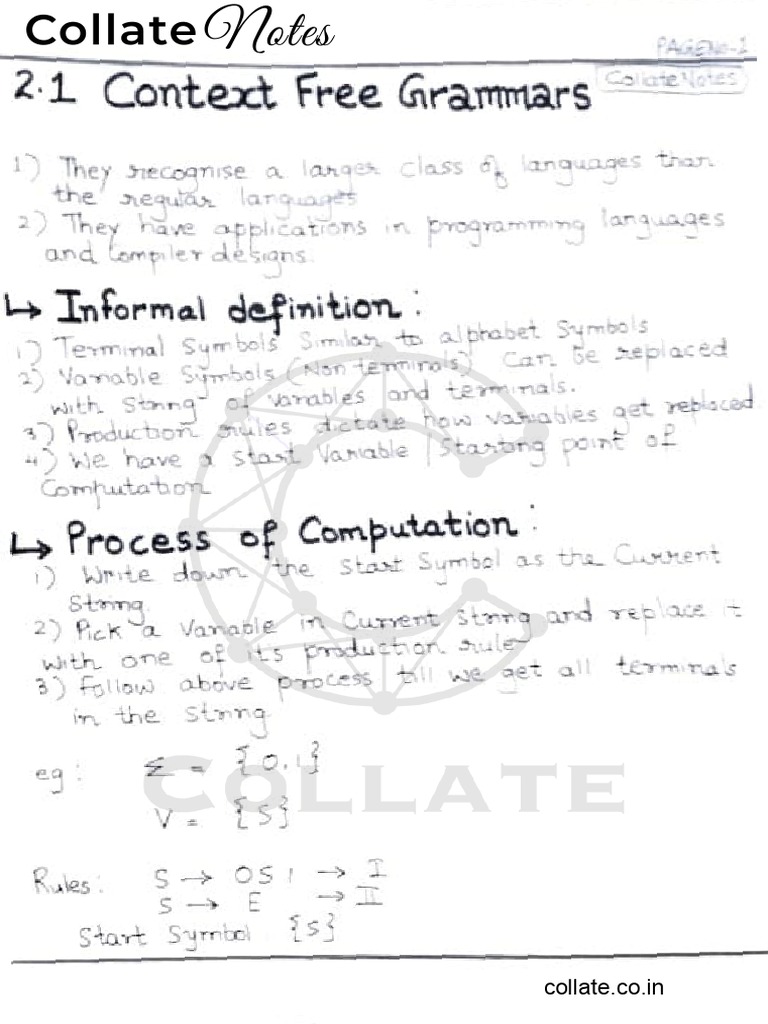 Collate Notes
PAGENO-1
2.1 Context Free Grammars
Collate Notes
1) They recognise a larger class of languages than
the regular languages
2) They have applications in programming languages
and Compiler designs.
↳ Informal definition:
1) Terminal Symbols Similar to alphabet Symbols
2) Variable Symbols (Non terminals) Can be replaced
with String of variables and terminals.
3) Production rules dictate how variables get replaced
4) We have a start Variable / Starting point of
Computation
↳ Process of Computation:
1) Write down the start Symbol as the Current
String.
2) Pick a Variable in Current string and replace it
with one of its production rules
3) Follow above process till we get all terminals
in the string.
eg: Σ = {0,1}
COLLATE
V = {S}
Rules: S → 0S1 → I
S → E → II
Start Symbol {S}
collate.co.in